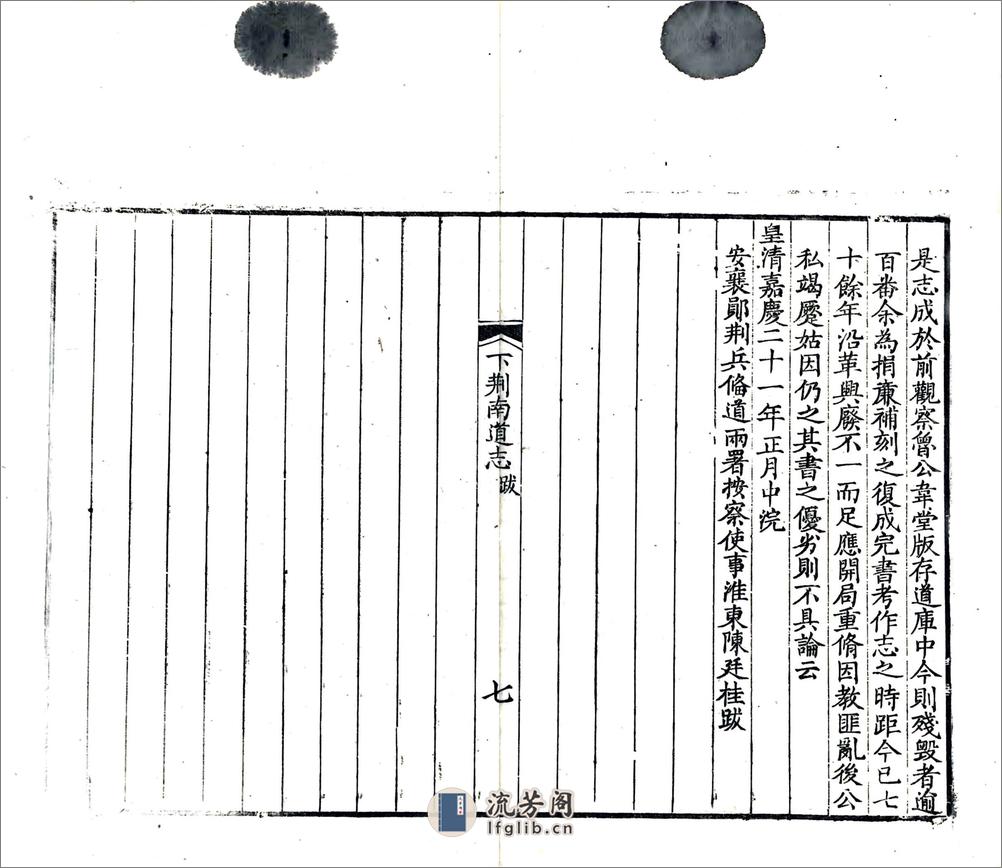 是志成於前觀察魯公韋堂版存道庫中今則殘毀者逾
百番余為捐廉補刻之復成完書考作志之時距今已七
十餘年沿革興廢不一而足應開局重脩因教匪亂後公
私竭蹷姑因仍之其書之優劣則不具論云
皇清嘉慶二十一年正月中浣
安襄鄖荆兵俻道兩署按察使事淮東陳廷桂跋
下荆南道志
跋
七
流芳阁
lfglib.cn